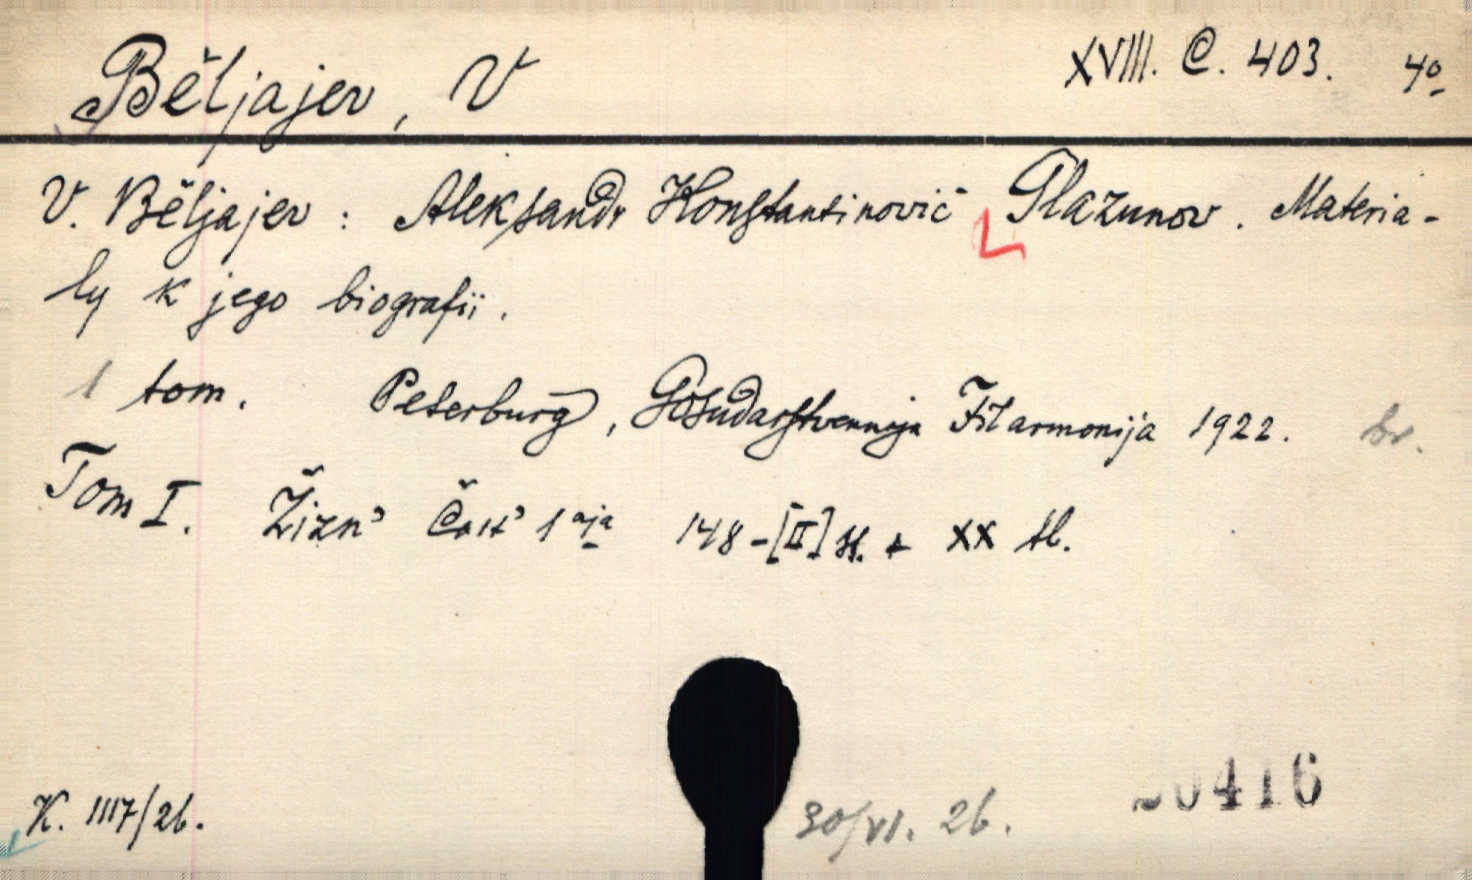 Běljajev, V XVIII. C. 403. 4º
V. Běljajev: Aleksandr Konstantinovič Glazunov. Materia-
ly k jego biografii.
1 tom. Peterburg, Gosudarstvennaja Filarmonija 1922. br.
Tom I. Žizn' Čast' 1 aja 148-[II] st. + XX tl.
K. 1117/26. 30/VI. 26. 20416